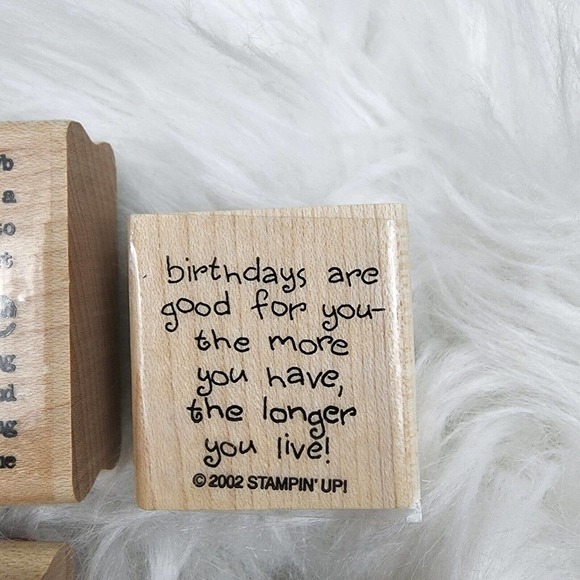 birthdays are
good for you-
the more
you have,
the longer
you live!
© 2002 STAMPIN' UP!